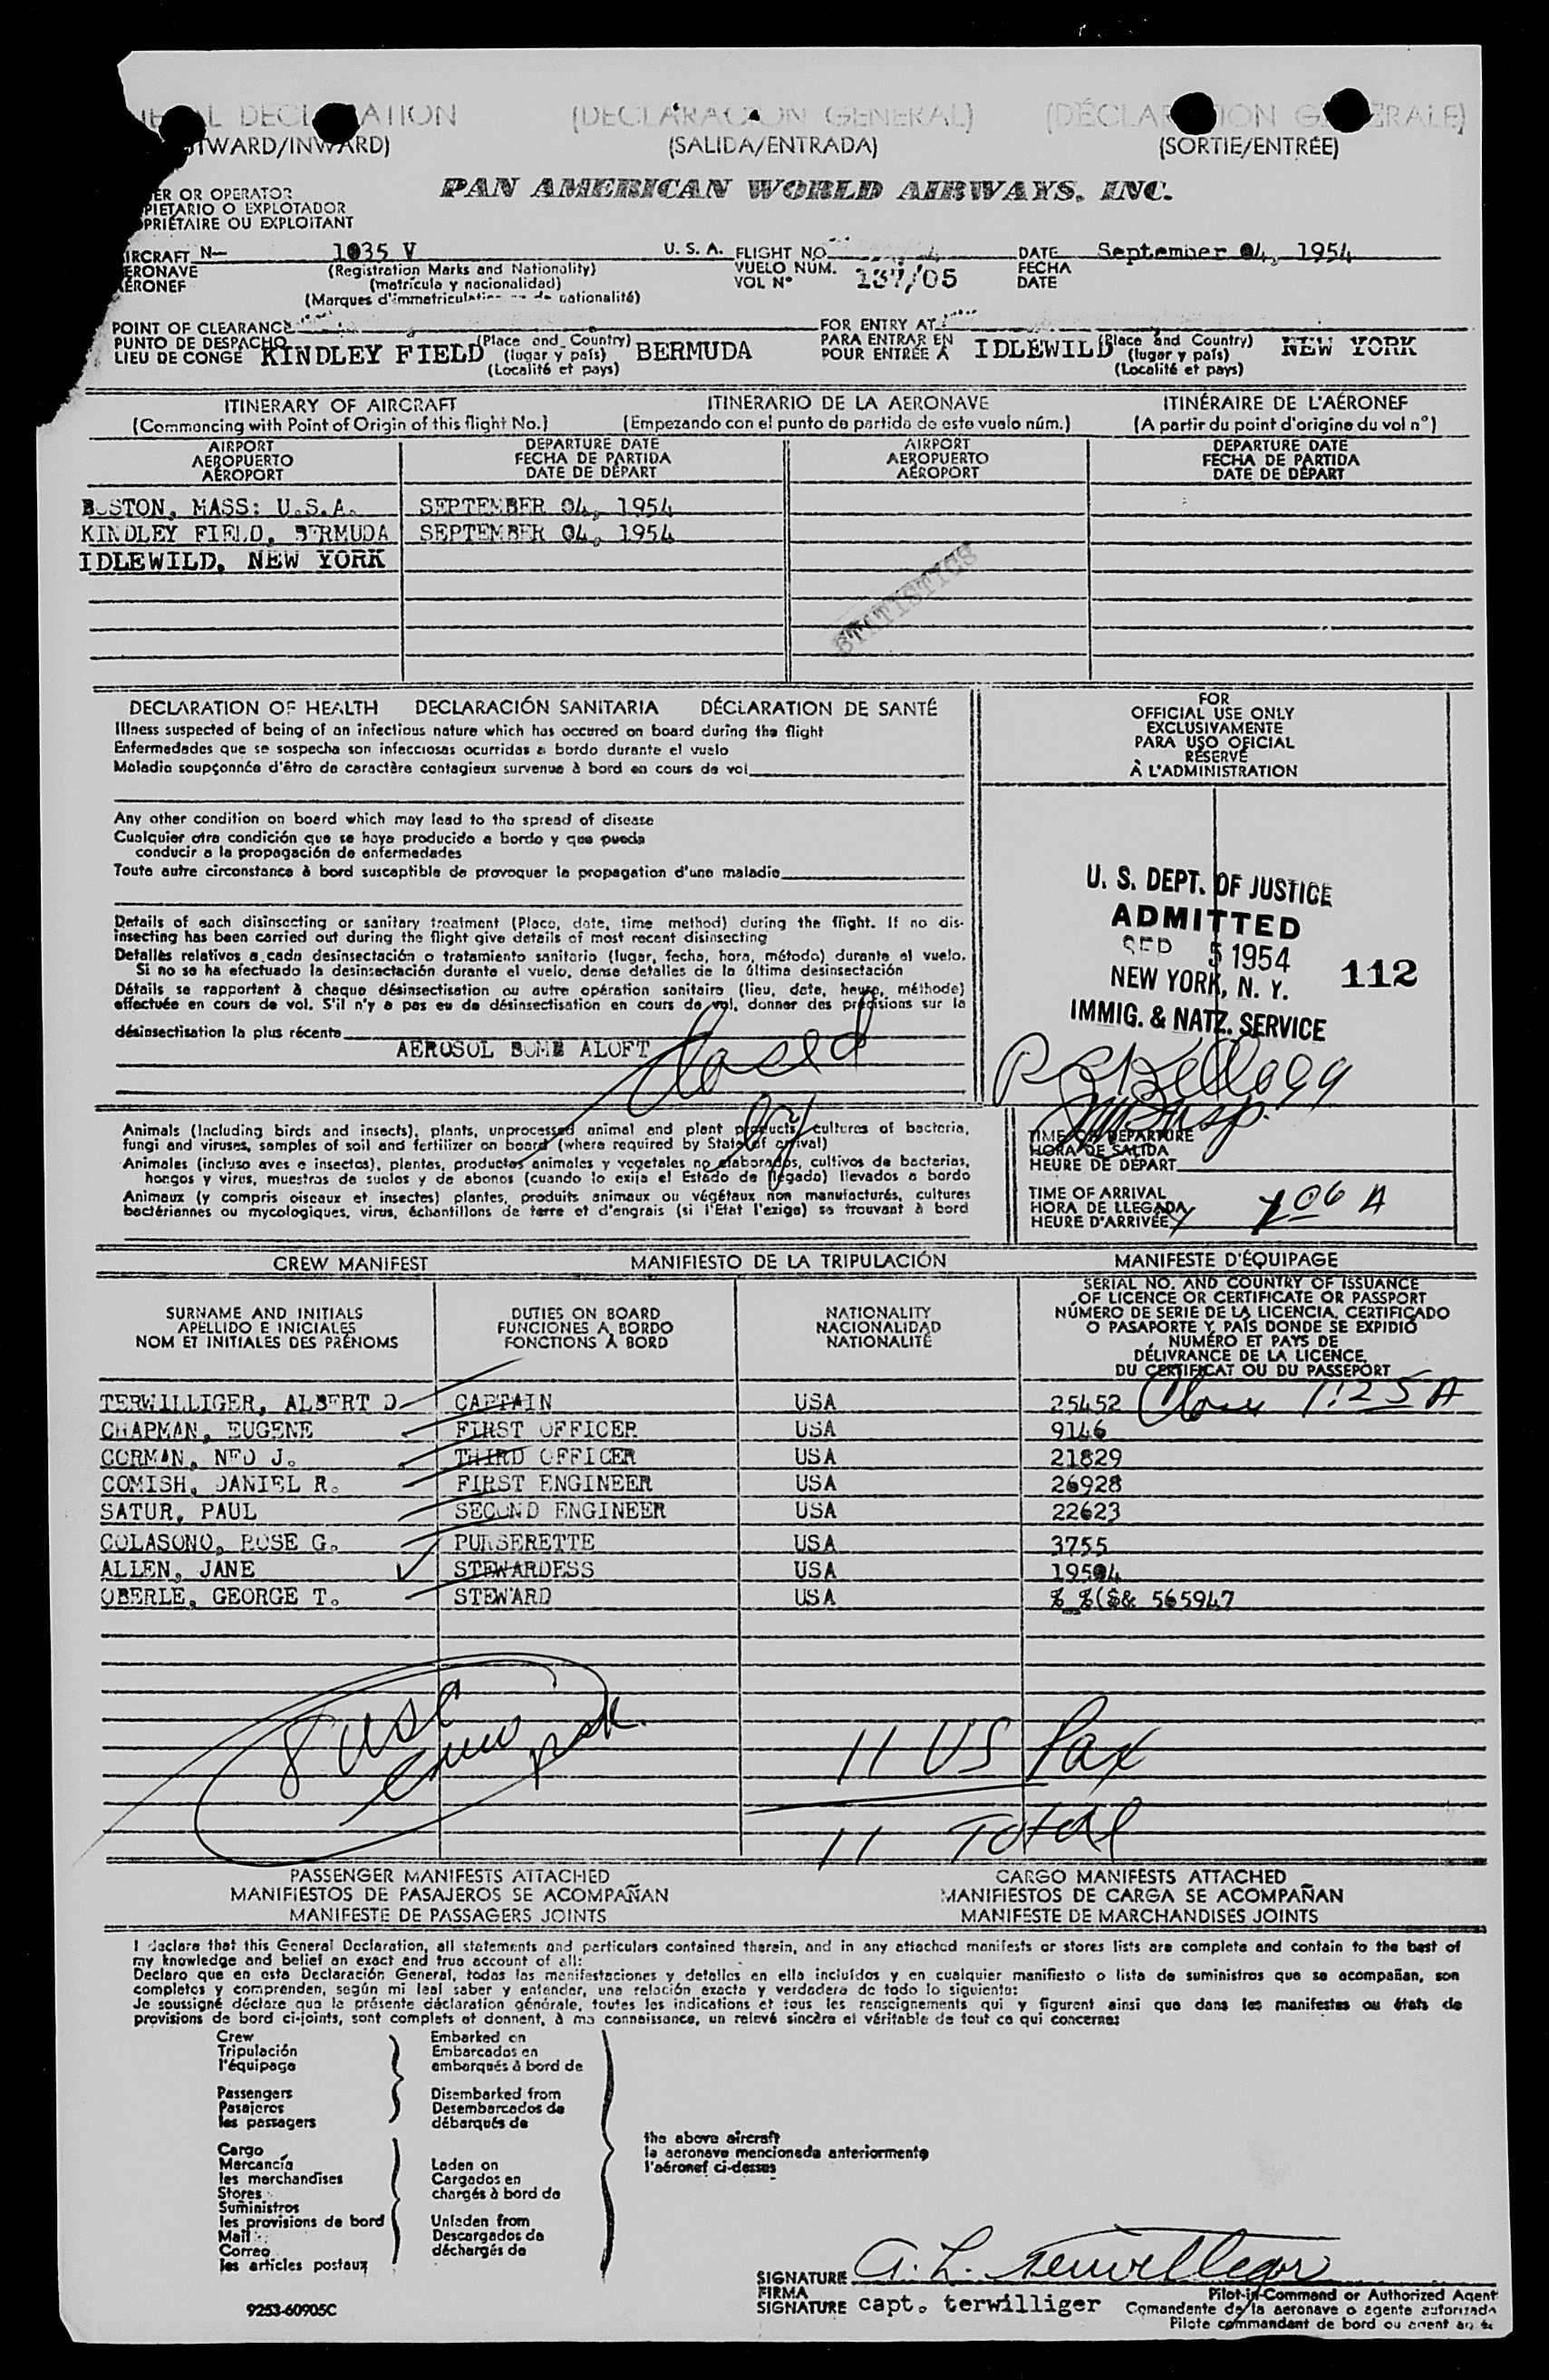 (DECLARACION GENERAL)
(SALIDA/ENTRADA) (SORTIE/ENTRÉE)
PAN AMERICAN WORLD AIRWAYS, INC.
OR OPERATOR
O EXPLOTADOR
OU EXPLOITANT
N- 1035 V U. S. A. FLIGHT NO. DATE September 04, 1954
(Registration Marks and Nationality) VUELO NUM. 137/05 FECHA
(matrícula y nacionalidad) VOL N° DATE
POINT OF CLEARANCE FOR ENTRY AT
PUNTO DE DESPACHO (Place and Country) PARA ENTRAR EN (Place and Country)
LIEU DE CONGÉ KINDLEY FIELD (lugar y país) BERMUDA POUR ENTRÉE À IDLEWILD (lugar y país) NEW YORK
(Localité et pays) (Localité et pays)
ITINERARY OF AIRCRAFT ITINERARIO DE LA AERONAVE ITINÉRAIRE DE L'AÉRONEF
(Commencing with Point of Origin of this flight No.) (Empezando con el punto de partida de este vuelo núm.) (A partir du point d'origine du vol n°)
AIRPORT DEPARTURE DATE AIRPORT DEPARTURE DATE
AEROPUERTO FECHA DE PARTIDA AEROPUERTO FECHA DE PARTIDA
AÉROPORT DATE DE DÉPART AÉROPORT DATE DE DÉPART
BOSTON, MASS: U.S.A. SEPTEMBER 04, 1954
KINDLEY FIELD, BERMUDA SEPTEMBER 04, 1954
IDLEWILD, NEW YORK
DECLARATION OF HEALTH DECLARACIÓN SANITARIA DÉCLARATION DE SANTÉ
Illness suspected of being of an infectious nature which has occured on board during the flight
Enfermedades que se sospecha son infecciosas ocurridas a bordo durante el vuelo
Maladie soupçonnée d'être de caractère contagieux survenue à bord en cours de vol
Any other condition on board which may lead to the spread of disease
Cualquier otra condición que se haya producido a bordo y que pueda
conducir a la propagación de enfermedades
Toute autre circonstance à bord susceptible de provoquer la propagation d'une maladie
Details of each disinsecting or sanitary treatment (Place, date, time method) during the flight. If no dis-
insecting has been carried out during the flight give details of most recent disinsecting
Detalles relativos a cada desinsectación o tratamiento sanitario (lugar, fecha, hora, método) durante el vuelo.
Si no se ha efectuado la desinsectación durante el vuelo, dense detalles de la última desinsectación
Détails se rapportant à chaque désinsectisation ou autre opération sanitaire (lieu, date, heure, méthode)
effectuée en cours de vol. S'il n'y a pas eu de désinsectisation en cours de vol, donner des précisions sur la
désinsectisation la plus récente
AEROSOL BOMB ALOFT
FOR
OFFICIAL USE ONLY
EXCLUSIVAMENTE
PARA USO OFICIAL
RÉSERVÉ
À L'ADMINISTRATION
U. S. DEPT. OF JUSTICE
ADMITTED
SEP 5 1954
NEW YORK, N. Y. 112
IMMIG. & NATZ. SERVICE
Kellogg
Insp.
Animals (Including birds and insects), plants, unprocessed animal and plant products, cultures of bacteria,
fungi and viruses, samples of soil and fertilizer on board (where required by State of arrival)
Animales (incluso aves e insectos), plantas, productos animales y vegetales no elaborados, cultivos de bacterias,
hongos y virus, muestras de suelos y de abonos (cuando lo exija el Estado de llegada) llevados a bordo
Animaux (y compris oiseaux et insectes) plantes, produits animaux ou végétaux non manufacturés, cultures
bactériennes ou mycologiques, virus, échantillons de terre et d'engrais (si l'État l'exige) se trouvant à bord
TIME OF DEPARTURE
HORA DE SALIDA
HEURE DE DÉPART
TIME OF ARRIVAL
HORA DE LLEGADA
HEURE D'ARRIVÉE 106 A
CREW MANIFEST MANIFIESTO DE LA TRIPULACIÓN MANIFESTE D'ÉQUIPAGE
SURNAME AND INITIALS DUTIES ON BOARD NATIONALITY SERIAL NO. AND COUNTRY OF ISSUANCE
APELLIDO E INICIALES FUNCIONES A BORDO NACIONALIDAD OF LICENCE OR CERTIFICATE OR PASSPORT
NOM ET INITIALES DES PRÉNOMS FONCTIONS À BORD NATIONALITÉ NÚMERO DE SERIE DE LA LICENCIA, CERTIFICADO
O PASAPORTE Y PAÍS DONDE SE EXPIDIÓ
NUMÉRO ET PAYS DE
DÉLIVRANCE DE LA LICENCE,
DU CERTIFICAT OU DU PASSEPORT
TERWILLIGER, ALBERT D CAPTAIN USA 25452 1:25 A
CHAPMAN, EUGENE FIRST OFFICER USA 9146
CORMAN, NED J. THIRD OFFICER USA 21829
COMISH, DANIEL R. FIRST ENGINEER USA 26928
SATUR, PAUL SECOND ENGINEER USA 22623
COLASONO, ROSE G. PURSERETTE USA 3755
ALLEN, JANE STEWARDESS USA 19504
OBERLE, GEORGE T. STEWARD USA % %($& 565947
8 USC
crew
11 US Pax
11 Total
PASSENGER MANIFESTS ATTACHED CARGO MANIFESTS ATTACHED
MANIFIESTOS DE PASAJEROS SE ACOMPAÑAN MANIFIESTOS DE CARGA SE ACOMPAÑAN
MANIFESTE DE PASSAGERS JOINTS MANIFESTE DE MARCHANDISES JOINTS
I declare that this General Declaration, all statements and particulars contained therein, and in any attached manifests or stores lists are complete and contain to the best of
my knowledge and belief an exact and true account of all:
Declaro que en esta Declaración General, todas las manifestaciones y detalles en ella incluídos y en cualquier manifiesto o lista de suministros que se acompañan, son
completos y comprenden, según mi leal saber y entender, una relación exacta y verdadera de todo lo siguiente:
Je soussigné déclare que la présente déclaration générale, toutes les indications et tous les renseignements qui y figurent ainsi que dans les manifestes ou états de
provisions de bord ci-joints, sont complets et donnent, à ma connaissance, un relevé sincère et véritable de tout ce qui concerne:
Crew Embarked on
Tripulación Embarcados en
l'équipage embarqués à bord de
Passengers Disembarked from
Pasajeros Desembarcados de
les passagers débarqués de
the above aircraft
la aeronave mencionada anteriormente
l'aéronef ci-dessus
Cargo
Mercancía Laden on
les marchandises Cargados en
Stores chargés à bord de
Suministros
les provisions de bord Unladen from
Mail Descargados de
Correo déchargés de
les articles postaux
SIGNATURE A. L. Terwilliger
FIRMA Pilot-in-Command or Authorized Agent
SIGNATURE capt. terwilliger Comandante de la aeronave o agente autorizado
Pilote commandant de bord ou agent
9253-60905C